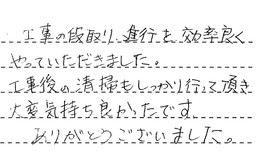 工事の段取り、進行も、効率良く
やっていただきました。
工事後の清掃もしっかり行って頂き
大変気持ち良かったです
ありがとうございました。